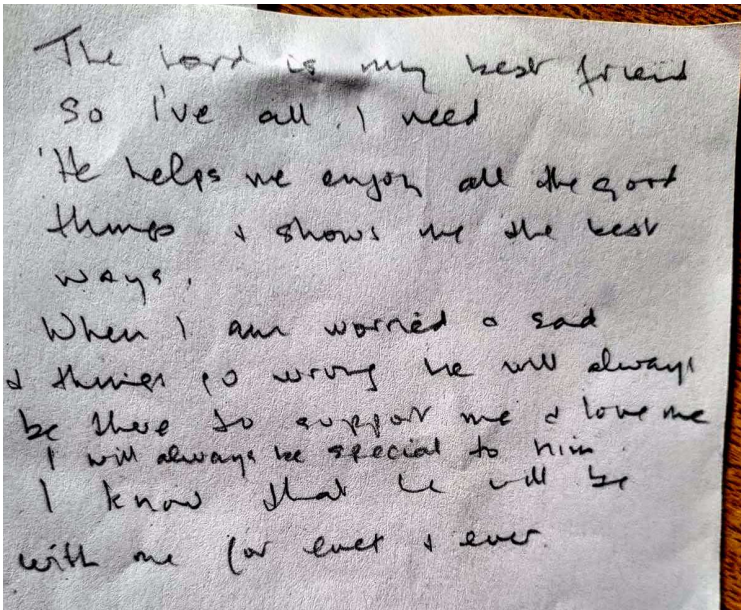 The Lord is my best friend
So I've all I need
He helps me enjoy all the good
things & shows me the best
ways.
When I am worried & sad
& things go wrong he will always
be there to support me & love me
I will always be special to him.
I know that he will be
with me for ever & ever.